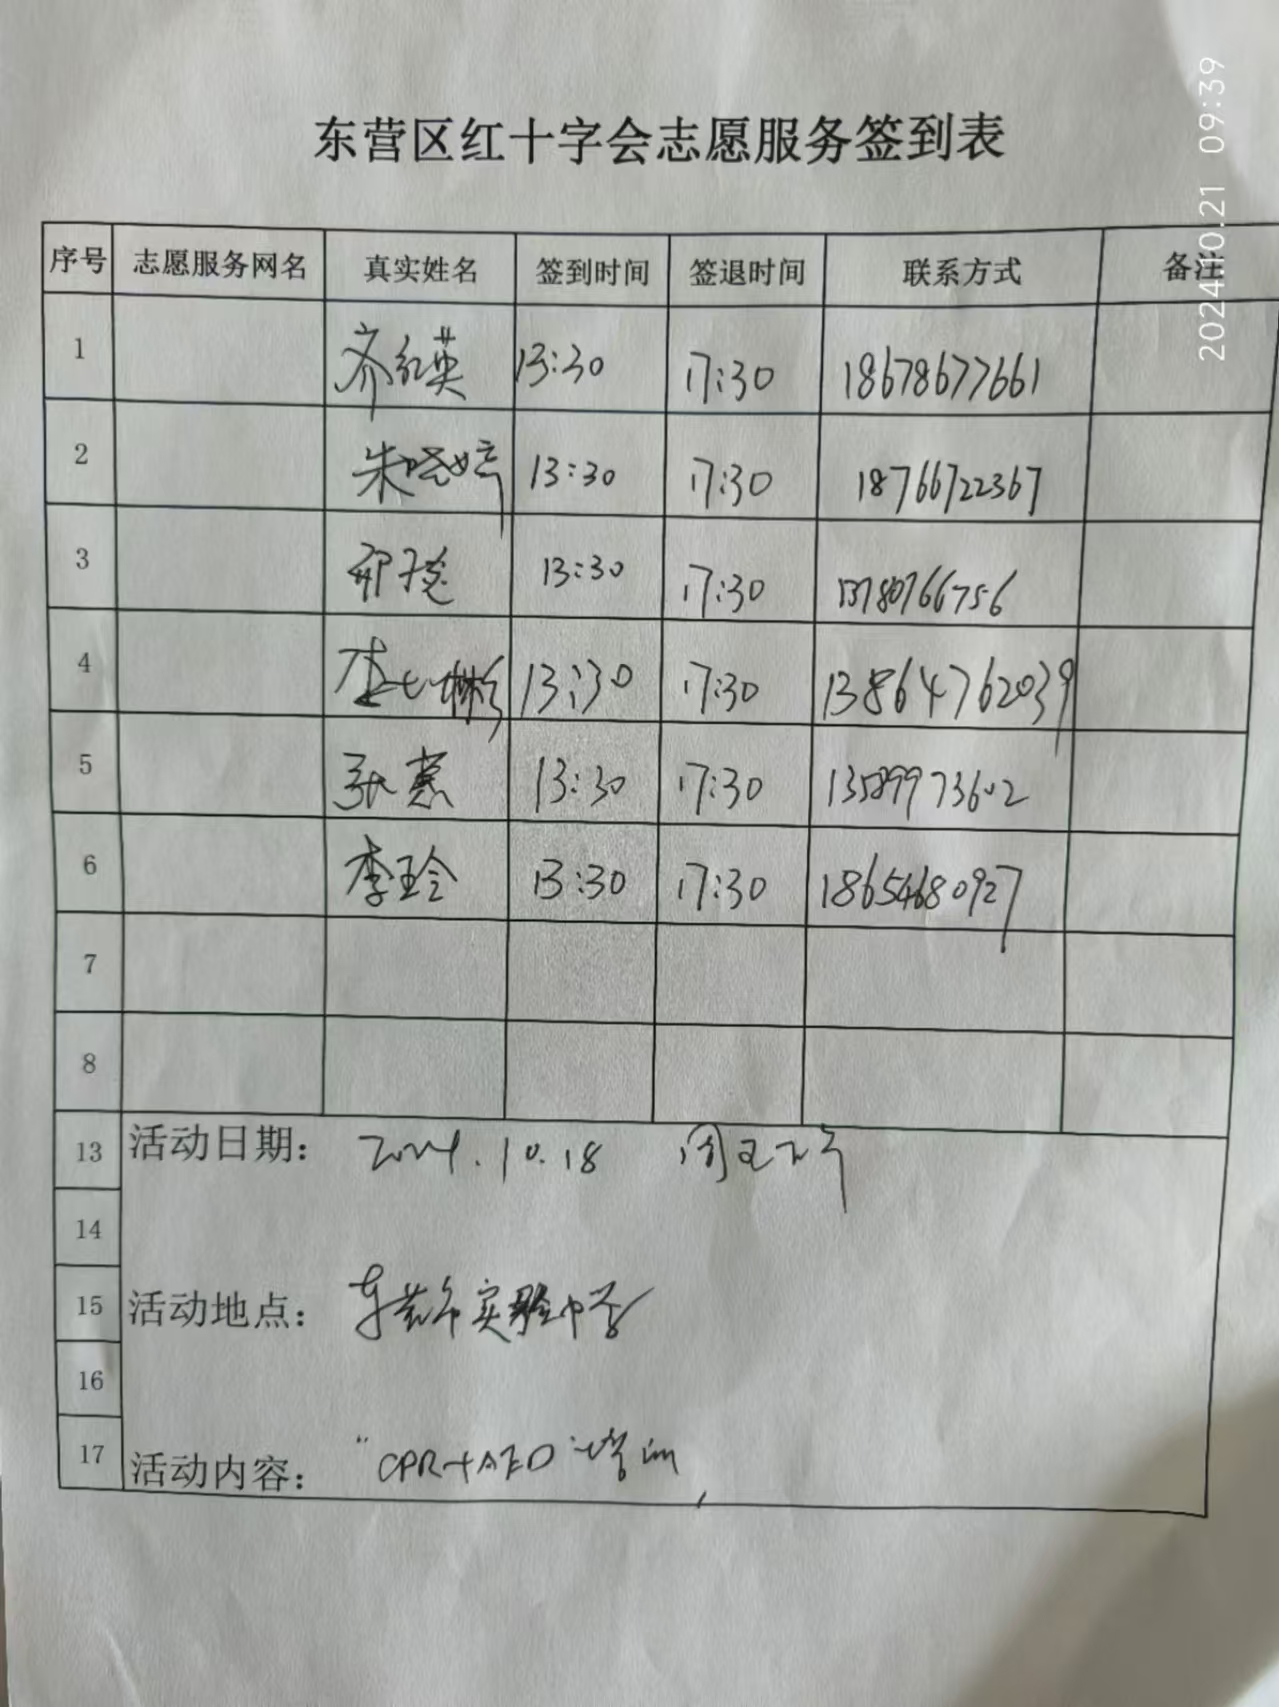 东营区红十字会志愿服务签到表
2024.10.21 09:39
序号 志愿服务网名 真实姓名 签到时间 签退时间 联系方式 备注
1 齐红英 13:30 17:30 18678677661
2 朱晓婷 13:30 17:30 18766722367
3 13:30 17:30 13780766756
4 13:30 17:30 13864762039
5 张蕙 13:30 17:30 13589973602
6 李玲 13:30 17:30 18654680927
7
8
13 活动日期： 2024.10.18 周五下午
14
15 活动地点： 东营市实验中学
16
17 活动内容： "CPR+AED"培训